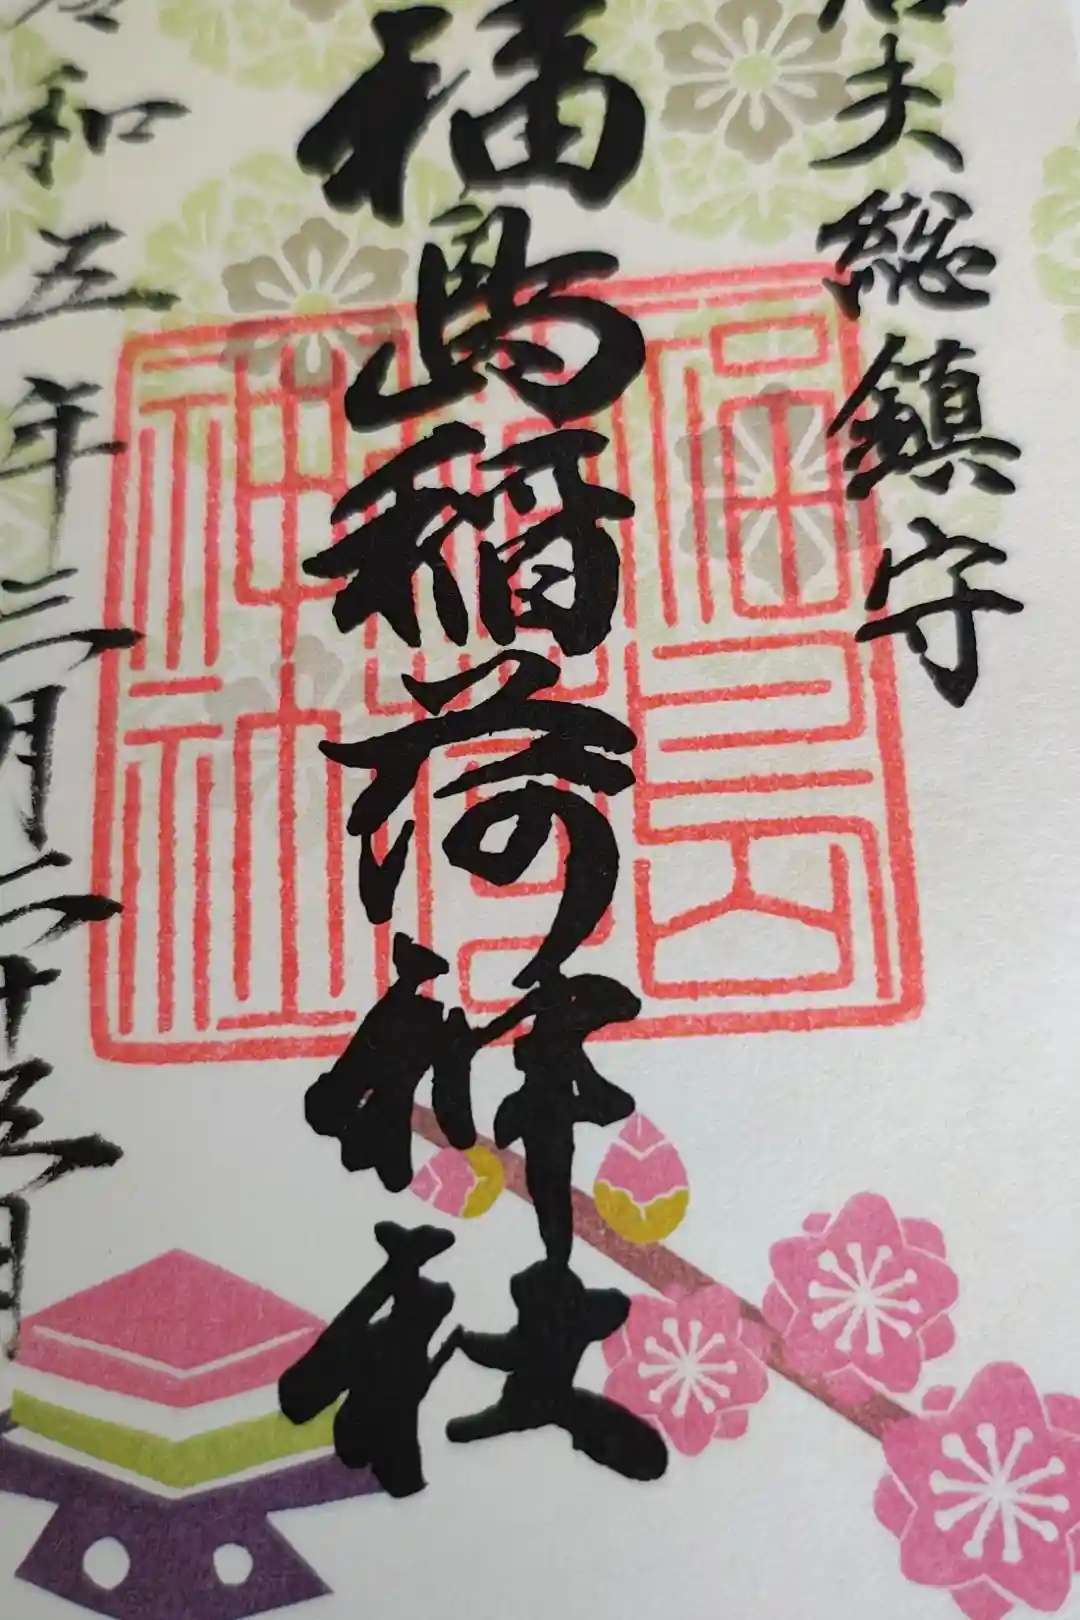 信夫総鎮守
福島稲荷神社
令和五年三月二十五日
福島
稲荷
神社